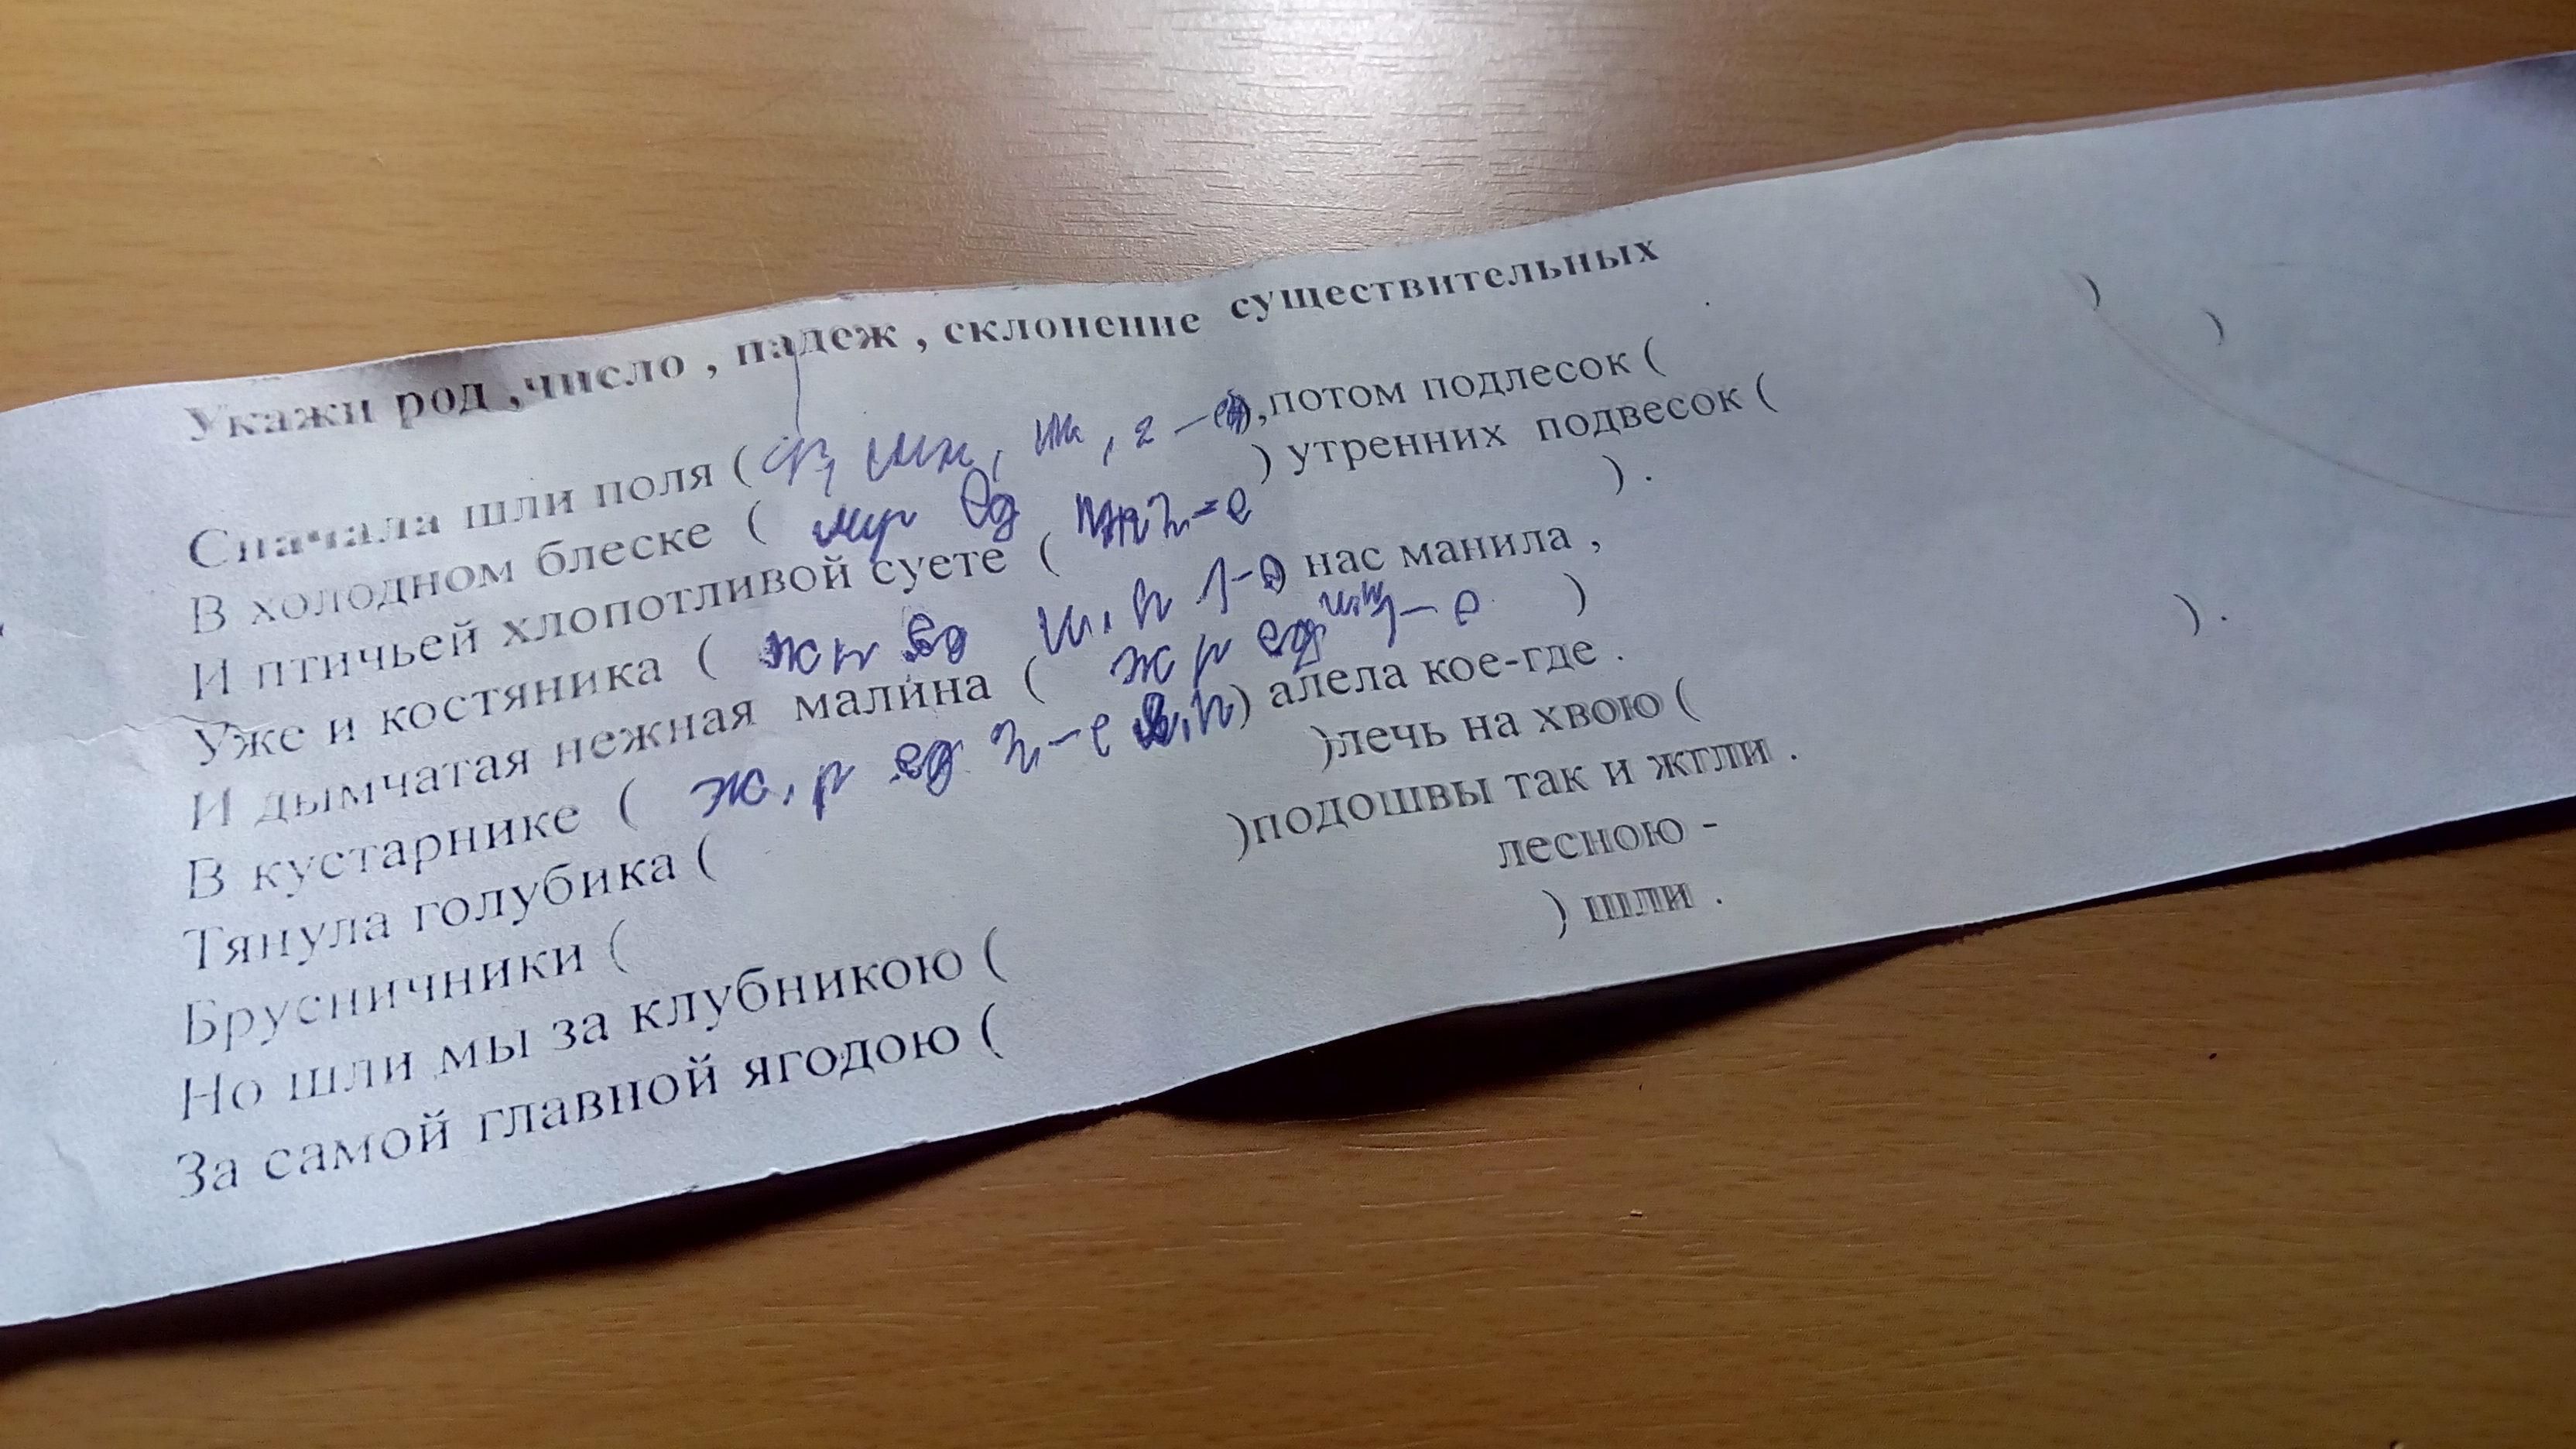 Укажи род ,число , падеж , склонение существительных
Сначала шли поля ( мн, , 2 – ),потом подлесок ( )
В холодном блеске ( м р ед 2 – е ) утренних подвесок ( )
И птичьей хлопотливой суете ( ) .
Уже и костяника ( ж р ед и, п 1 – е нас манила ,
И дымчатая нежная малина ( ж р ед и, п 1 – е )
В кустарнике ( ж, р ед 2 – е , п ) алела кое-где .
Тянула голубика ( )лечь на хвою ( ) .
Брусничники ( )подошвы так и жгли .
Но шли мы за клубникою ( лесною -
За самой главной ягодою ( ) шли .